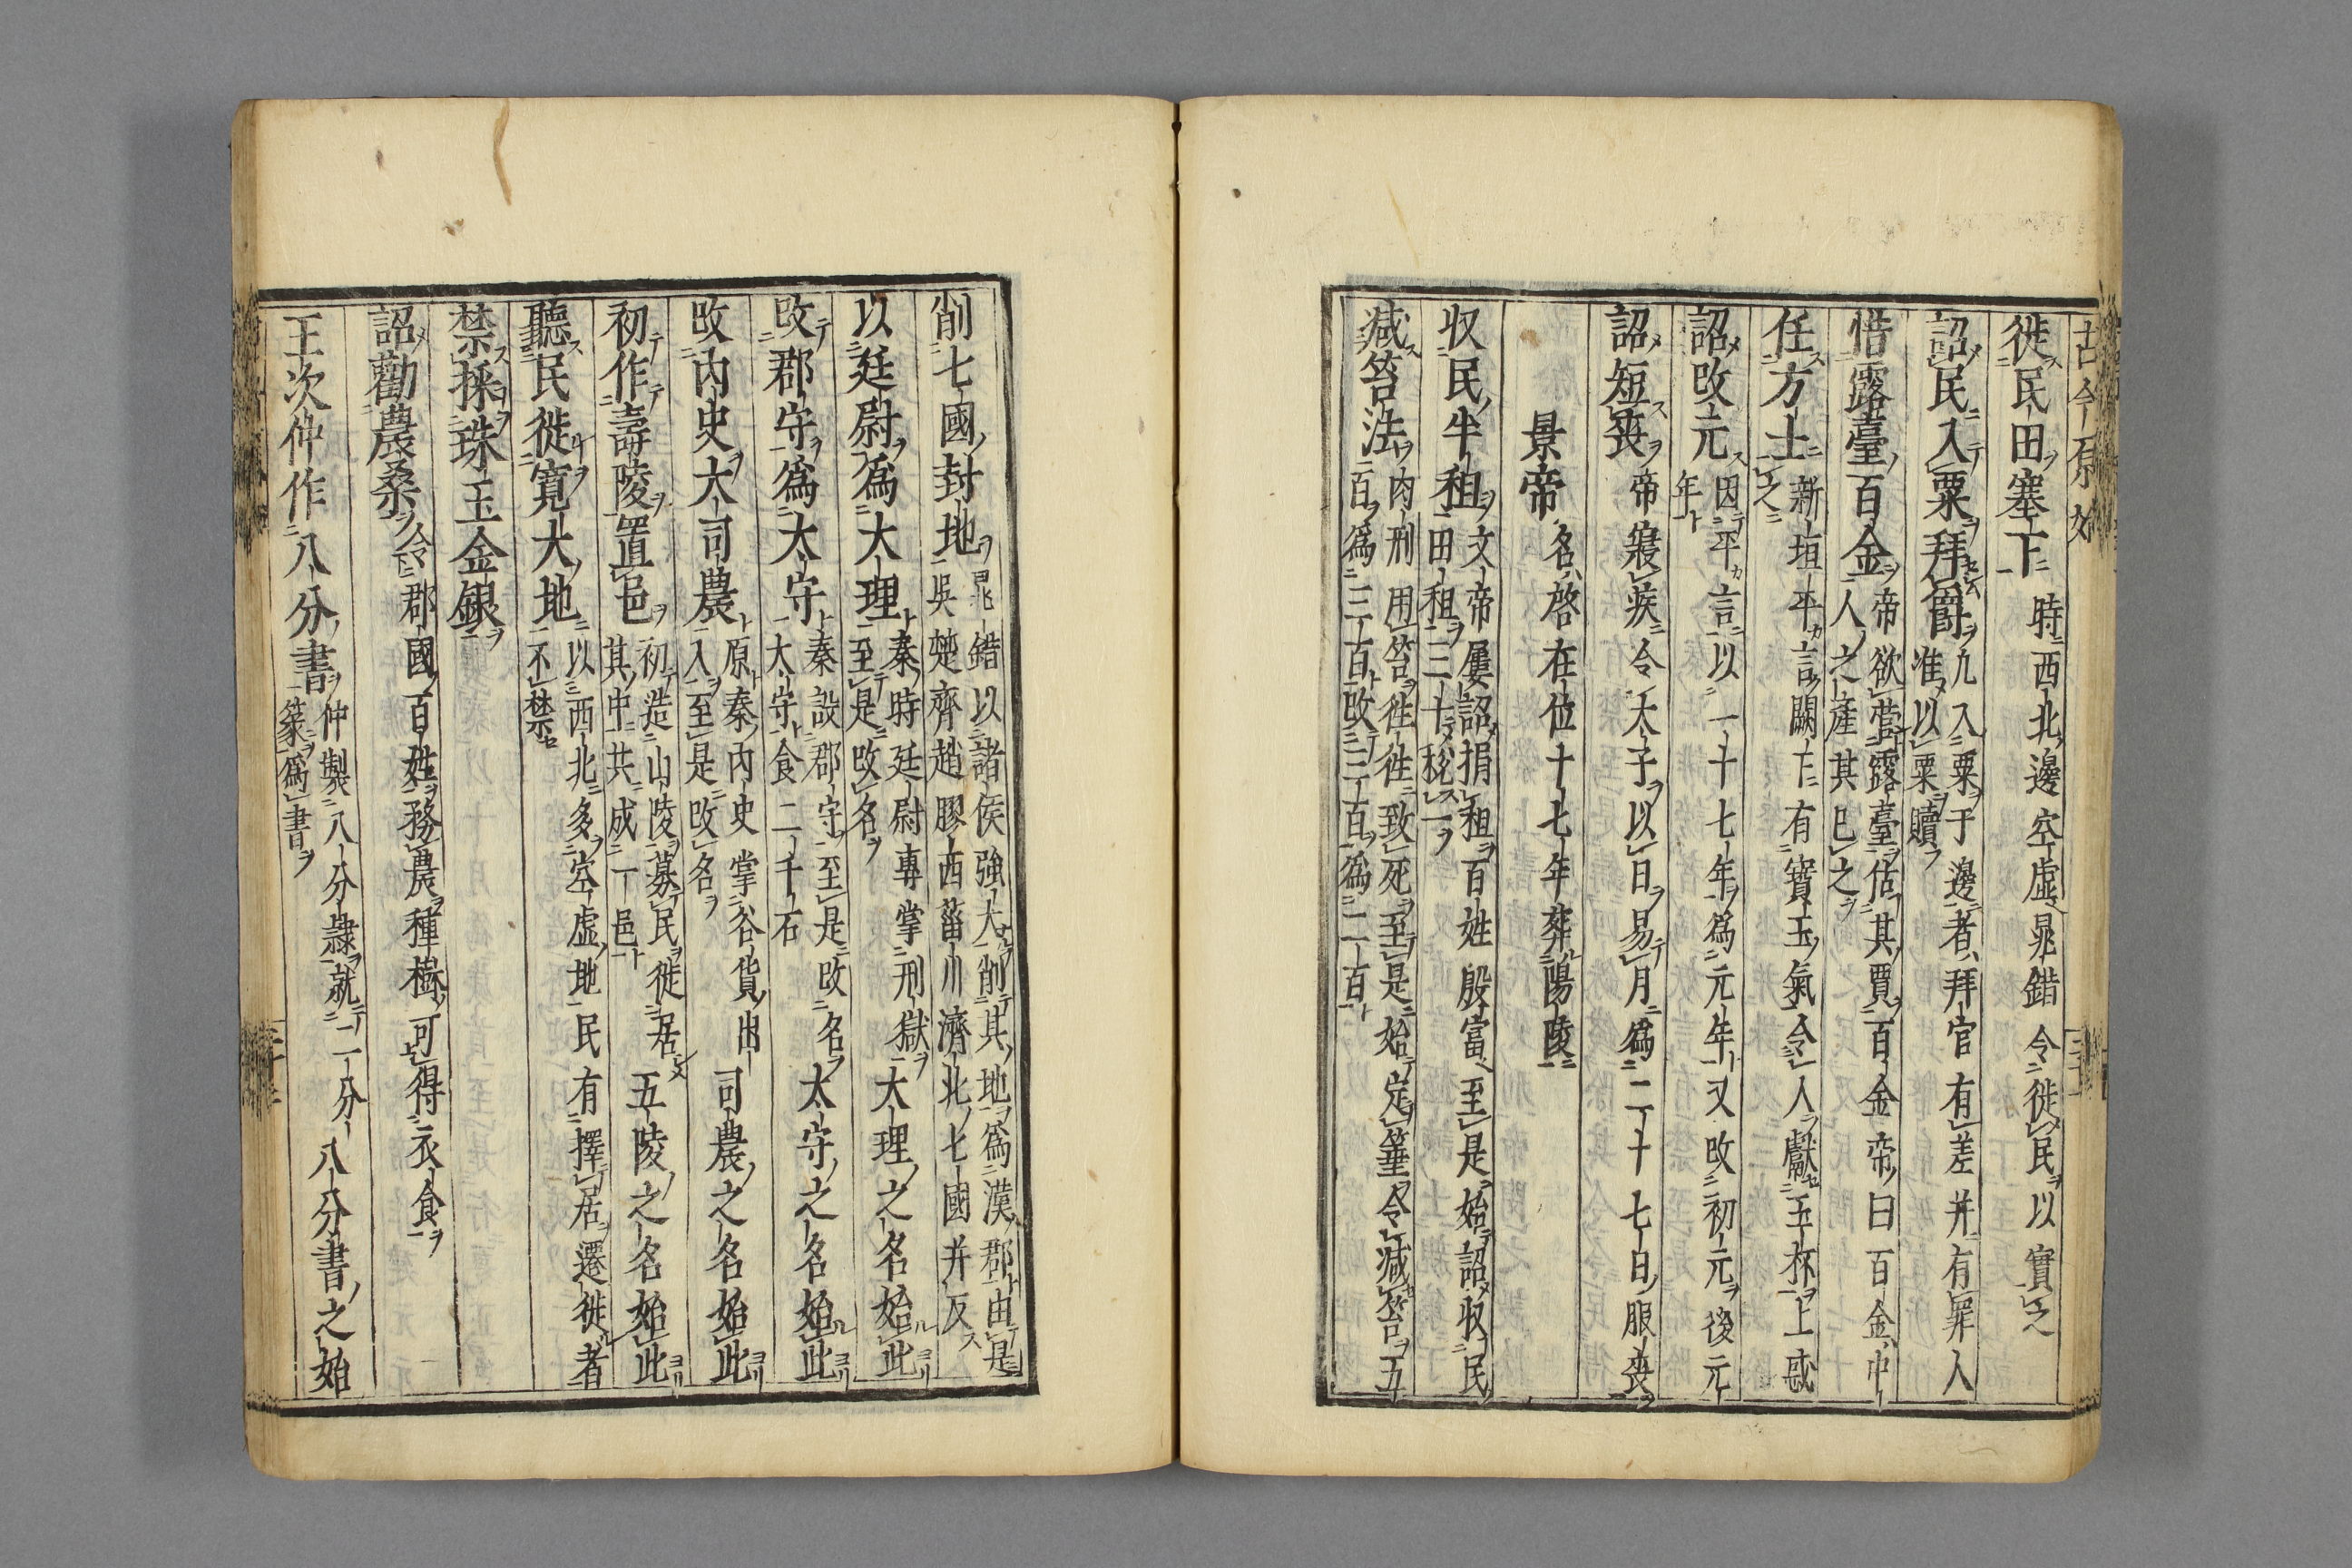 古今原始
徙民田塞下 時西北邊空虛晁錯令徙民以實之
詔民入粟拜爵 凡入粟于邊者拜官有差并有罪人
准以粟贖
惜露臺百金 帝欲營露臺估其賈百金帝曰百金中
人之產其已之
任方士 新垣平言闕下有寶玉氣令人獻玉杯上惑
之
詔改元 因平言以一十七年爲元年又改初元後元
年
詔短喪 帝寢疾令太子以日易月爲二十七日服喪
景帝 名啓在位十七年葬陽陵
収民半租 文帝屢詔捐租百姓殷富至是始詔収民
田租三十税一
減笞法 肉刑用笞徃徃致死至是始定箠令減笞五
百爲三百改三百爲二百
削七國封地 晁錯以諸侯強大削其地爲漢郡由是
吳楚齊趙膠西菑川濟北七國并反
以廷尉爲大理 秦時廷尉專掌刑獄大理之名始此
至是改名
改郡守爲太守 秦設郡守至是改名太守之名始此
太守食二千石
改內史大司農 原秦內史掌谷貨出司農之名始此
入至是改名
初作壽陵置邑 初造山陵募民徙居五陵之名始此
其中共成一邑
聽民徙寬大地 以西北多空虛地民有擇居遷徙者
不禁
禁採珠玉金銀
詔勸農桑 令郡國百姓務農種樹可得衣食
王次仲作八分書 仲製八分隷就二分八分書之始
篆爲書